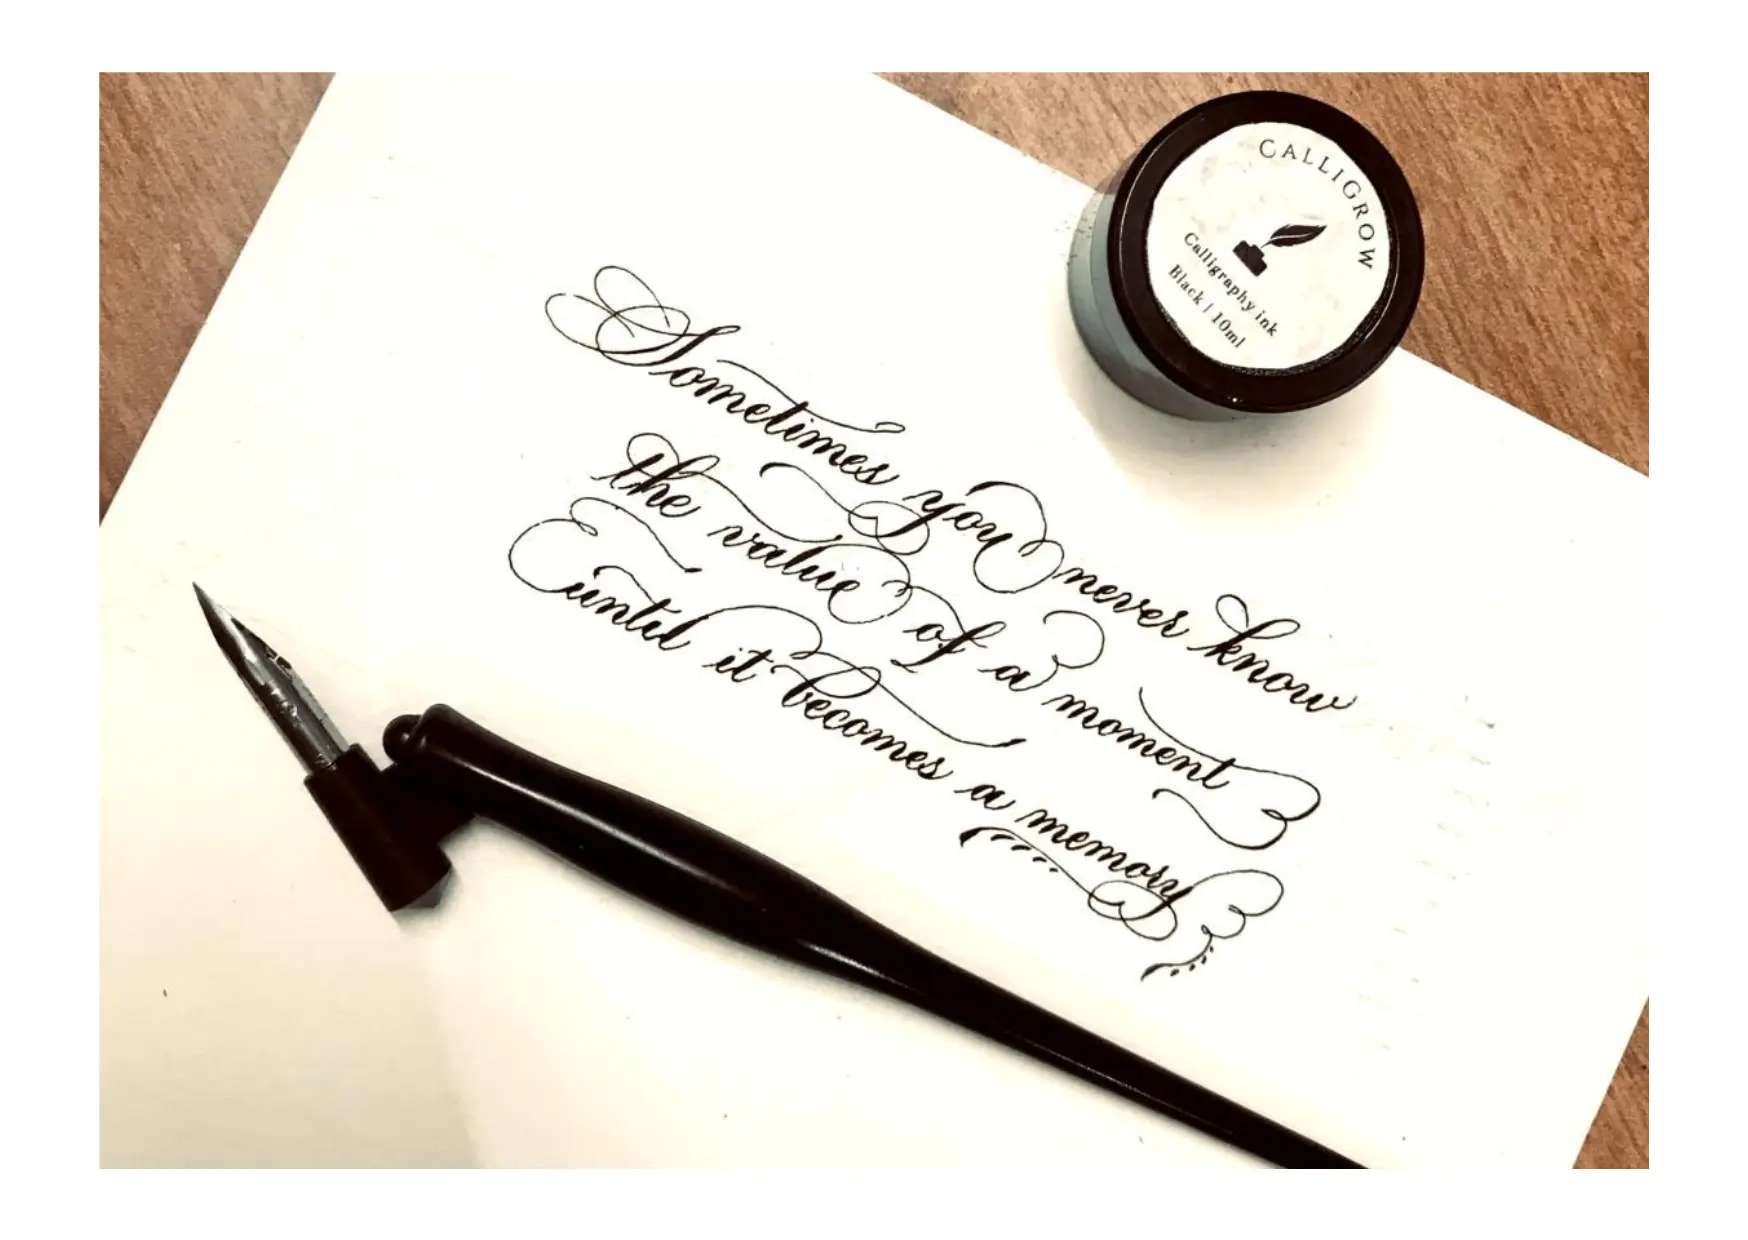 CALLIGROW
Calligraphy ink
Black | 10ml
Sometimes you never know
the value of a moment
until it becomes a memory